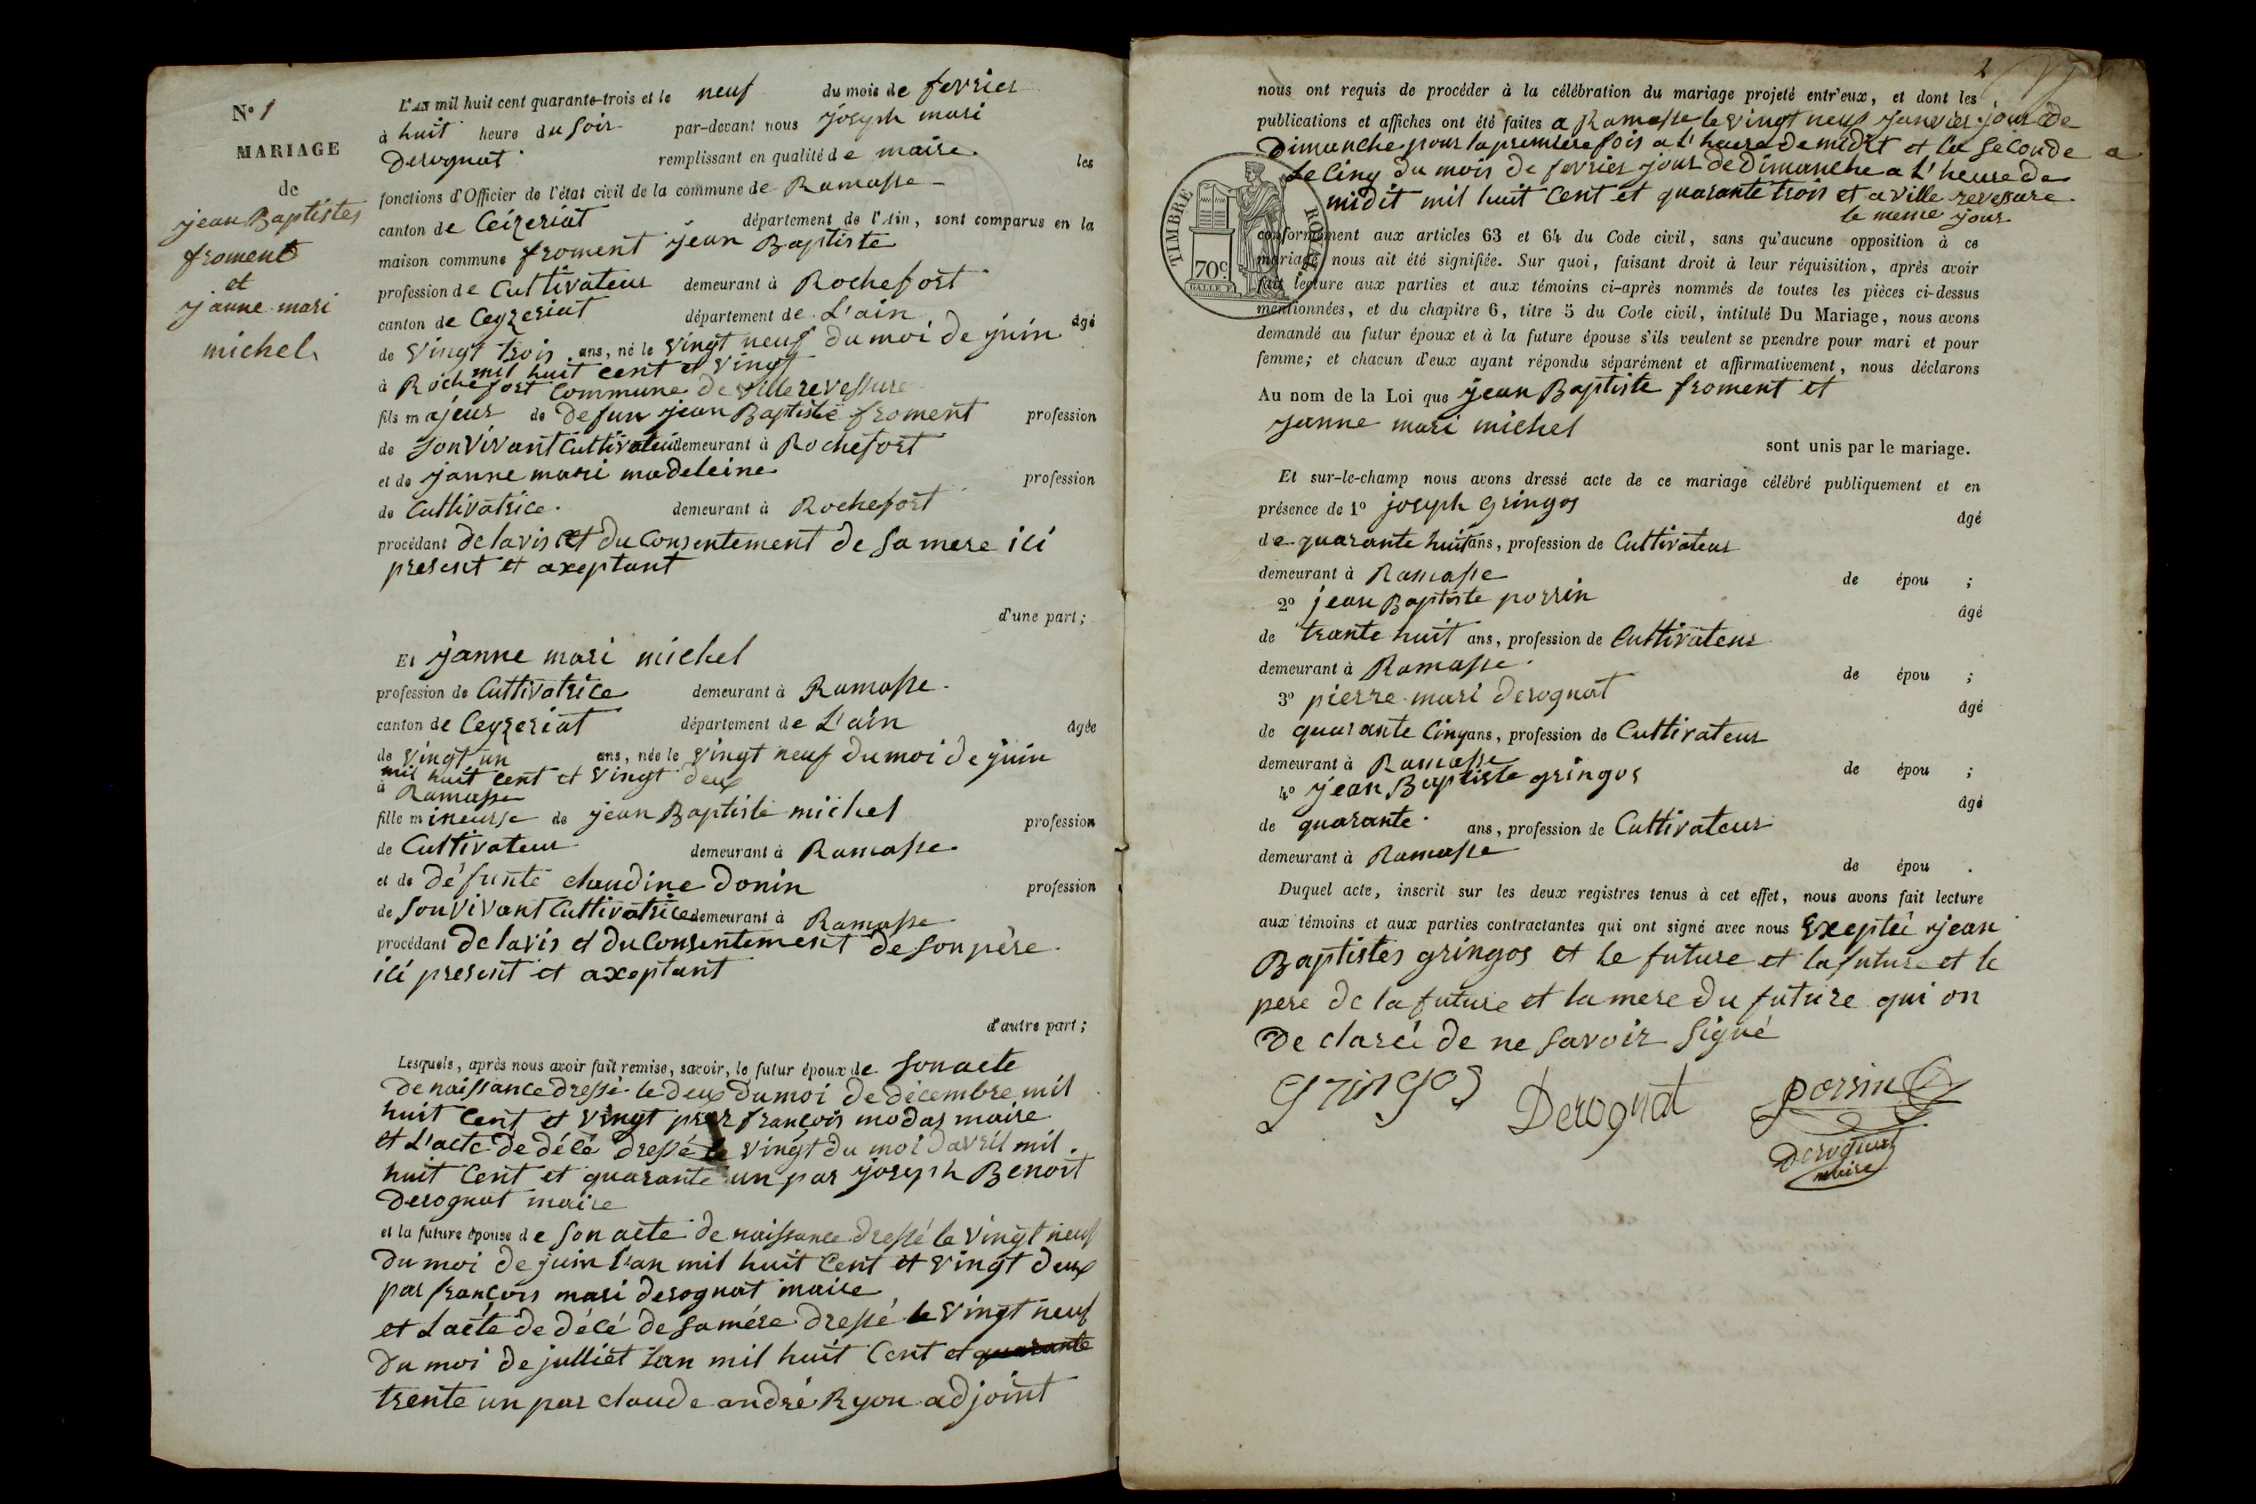 N° 1
MARIAGE
de
jean Baptistes
froment
et
janne mari
michel
L'AN mil huit cent quarante-trois et le neuf du mois de fevrier
à huit heure du soir par-devant nous joseph mari
Derognat remplissant en qualité de maire les
fonctions d'Officier de l'état civil de la commune de Ramasse
canton de Ceizeriat département de l'Ain, sont comparus en la
maison commune froment jean Baptiste
profession de Cultivateur demeurant à Rochefort
canton de Ceyzeriat département de L'ain âgé
de vingt trois ans, né le vingt neuf du moi de juin
mil huit cent et vingt
à Rochefort Commune de villerevessure
fils majeur de defun jean Baptiste froment profession
de son vivant Cultivateur demeurant à Rochefort
et de janne mari madeleine profession
de Cultivatrice demeurant à Rochefort
procédant de lavis et du Consentement de sa mere ici
present et axeptant
d'une part;
Et janne mari michel
profession de Cultivatrice demeurant à Ramasse
canton de Ceyzeriat département de L'ain âgée
de vingt un ans, née le vingt neuf du moi de juin
mil huit cent et vingt deux
à Ramasse
fille mineurse de jean Baptiste michel profession
de Cultivateur demeurant à Ramasse
et de défunte claudine Donin profession
de son vivant Cultivatrice demeurant à Ramasse
procédant de lavis et du Consentement de son père
ici present et axeptant
d'autre part;
Lesquels, après nous avoir fait remise, savoir, le futur époux de son acte
de naissance dressé le deux du moi de décembre mil
huit cent et vingt par françois modas maire
et L'acte de décé dressé le vingt du moi davril mil
huit Cent et quarante un par joseph Benoit
Derognat maire
et la future épouse de son acte de naissance dressé le vingt neuf
du moi de juin l'an mil huit Cent et vingt deux
par françois mari derognat maire
et L'acte de décé de sa mére dressé le vingt neuf
du moi de julliet Lan mil huit Cent et quarante
trente un par claude andré Ryon adjoint
2
nous ont requis de procéder à la célébration du mariage projeté entr'eux, et dont les
publications et affiches ont été faites a Ramasse le vingt neuf janvier jour de
Dimanche pour la premiere fois a l'heure de midit et la seconde a
Le Cinq du mois de fevrier jour de Dimanche a L'heure de
midit mil huit Cent et quarante trois et a ville revessure
le meme jour
conformément aux articles 63 et 64 du Code civil, sans qu'aucune opposition à ce
mariage nous ait été signifiée. Sur quoi, faisant droit à leur réquisition, après avoir
fait lecture aux parties et aux témoins ci-après nommés de toutes les pièces ci-dessus
mentionnées, et du chapitre 6, titre 5 du Code civil, intitulé Du Mariage, nous avons
demandé au futur époux et à la future épouse s'ils veulent se prendre pour mari et pour
femme; et chacun d'eux ayant répondu séparément et affirmativement, nous déclarons
TIMBRE ROYAL
70c.
Au nom de la Loi que jean Baptiste froment et
janne mari michel
sont unis par le mariage.
Et sur-le-champ nous avons dressé acte de ce mariage célébré publiquement et en
présence de 1° joseph gringos âgé
de quarante huit ans, profession de Cultivateur
demeurant à Ramasse de épou ;
2° jean Baptiste porrin âgé
de trante huit ans, profession de Cultivateur
demeurant à Ramasse de épou ;
3° pierre mari derognat âgé
de quarante Cinq ans, profession de Cultivateur
demeurant à Ramasse de épou ;
4° jean Baptiste gringos âgé
de quarante ans, profession de Cultivateur
demeurant à Ramasse de épou .
Duquel acte, inscrit sur les deux registres tenus à cet effet, nous avons fait lecture
aux témoins et aux parties contractantes qui ont signé avec nous Exeptéi jean
Baptistes gringos et le future et la future et le
pere de la future et la mere du future qui on
De claréi de ne savoir signé
gringos Derognat porrin
Derognat
maire